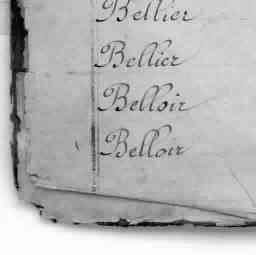 Bellier
Bellier
Belloir
Belloir